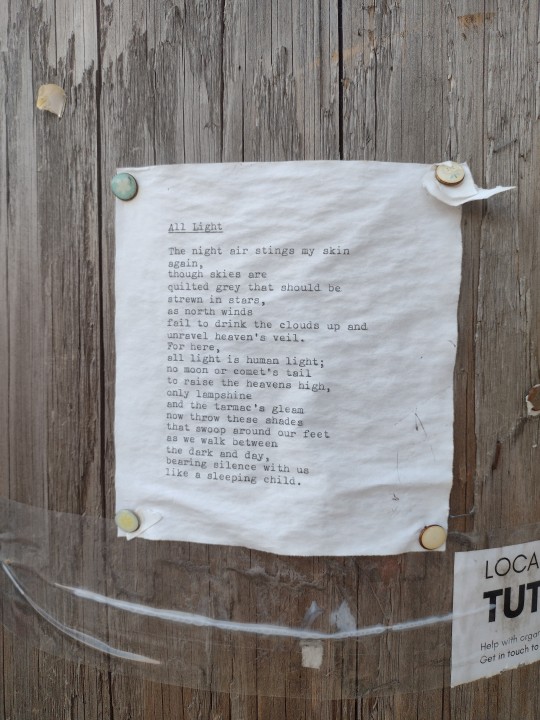 All Light
The night air stings my skin
again,
though skies are
quilted grey that should be
strewn in stars,
as north winds
fail to drink the clouds up and
unravel heaven's veil.
For here,
all light is human light;
no moon or comet's tail
to raise the heavens high,
only lampshine
and the tarmac's gleam
now throw these shades
that swoop around our feet
as we walk between
the dark and day,
bearing silence with us
like a sleeping child.
LOCA
TUT
Help with
Get in touch to